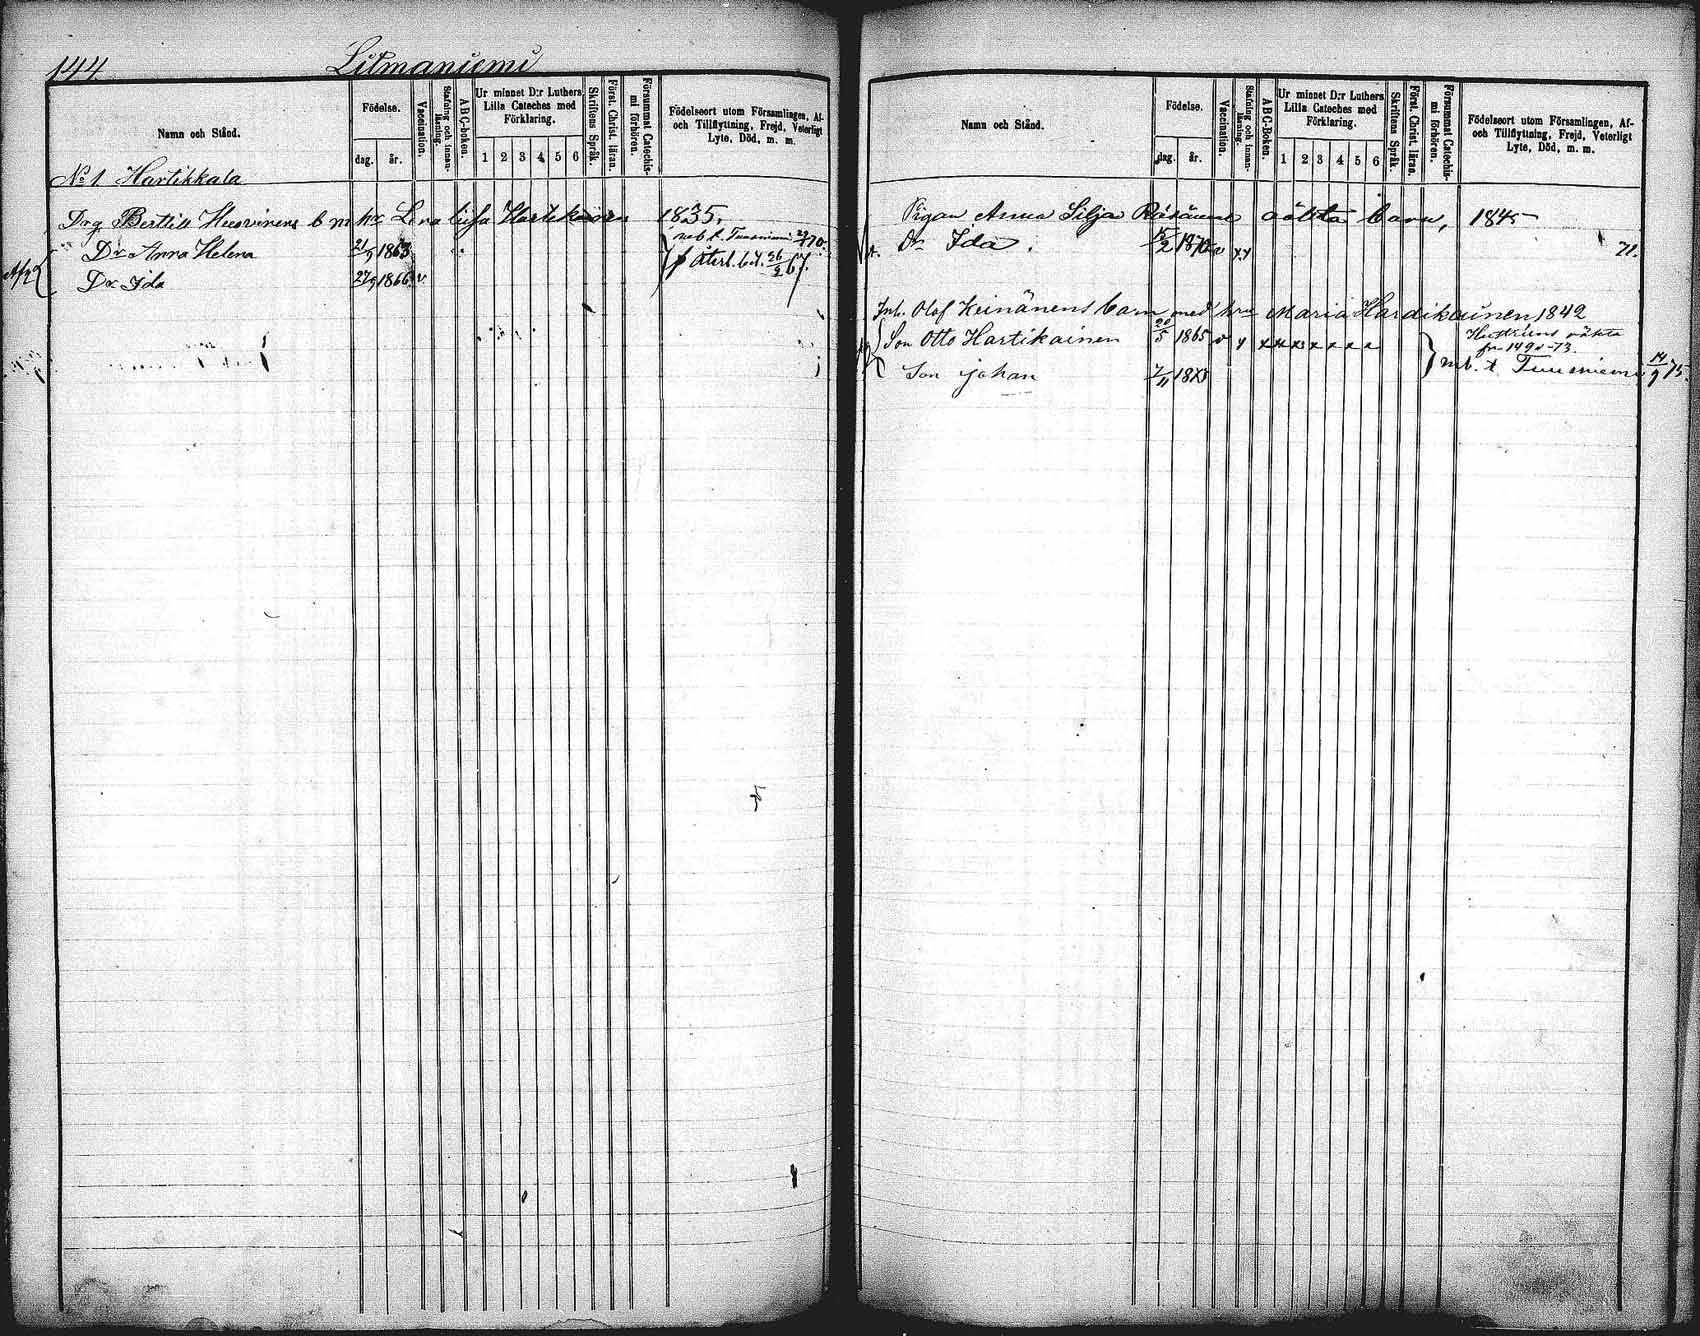 144 Litmaniemi
Namn och Stånd.
Födelse.
dag. år.
Vaccination.
Stafning och innan-läsning.
A B C-boken.
Ur minnet D:r Luthers
Lilla Cateches med
Förklaring.
1 2 3 4 5 6
Skriftens Språk.
Först. Christ. läran.
Försummat Catechis-
mi förhören.
Födelseort utom Församlingen, Af-
och Tillflyttning, Frejd, Veterligt
Lyte, Död, m. m.
No 1 Hartikkala
Drg Bertill b m hu Lena Hartikainen 1835.
Dr Anna Helena 21/9 1863 mb t. Tuusniemi 70.
Dr Ida 27/9 1866 v Återl. bet. 26/2 67.
Namn och Stånd.
Födelse.
dag. år.
Vaccination.
Stafning och innan-läsning.
A B C-Boken.
Ur minnet D:r Luthers
Lilla Cateches med
Förklaring.
1 2 3 4 5 6
Skriftens Språk.
Först. Christ. läran.
Försummat Catechis-
mi förhören.
Födelseort utom Församlingen, Af-
och Tillflyttning, Frejd, Veterligt
Lyte, Död, m. m.
Pigan Anna Silja Räsänens oäkta barn, 1845
Dr Ida. 15/2 1870 v x x 71.
Inh. Olof Keinänens barn med hru Maria Hardikainen 1842
Son Otto Hartikainen 20/5 1865 v x x x x x x x x Hustruns oäkta
fr 149 v -73.
Son Johan 7/11 1873 mb. t Tuusniemi 14/9 75.